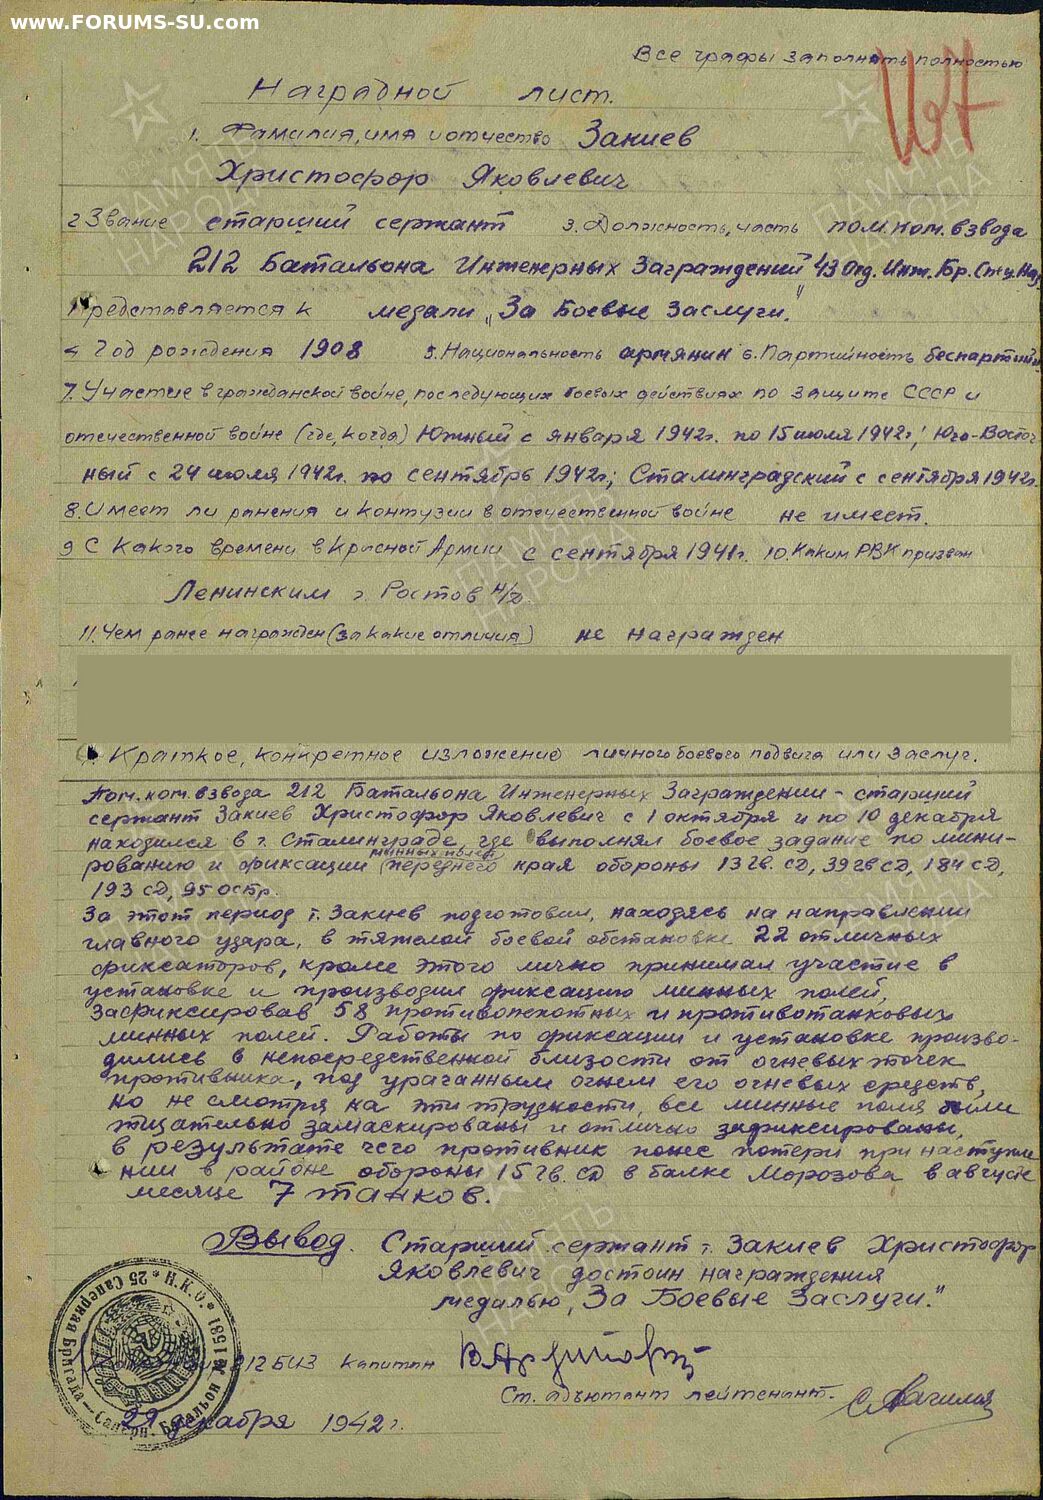 www.FORUMS-SU.com
Все графы заполнять полностью
Наградной лист.
1. Фамилия, имя и отчество Закиев
Христофор Яковлевич
2 Звание старший сержант 3. Должность, часть пом. ком. взвода
212 Батальона Инженерных Заграждений 43 Отд. Инж. Бр. Спец. Наз.
Представляется к медали „За Боевые Заслуги."
4 Год рождения 1908 5. Национальность армянин 6. Партийность беспартийн
7. Участие в гражданской войне, последующих боевых действиях по защите СССР и
отечественной войне (где, когда) Южный с января 1942г. по 15 июля 1942г; Юго-Восточ
ный с 24 июля 1942г. по сентябрь 1942г; Сталинградский с сентября 1942г.
8. Имеет ли ранения и контузии в отечественной войне не имеет.
9 С какого времени в Красной Армии с сентября 1941г. 10. Каким РВК призван
Ленинским г. Ростов н/Д.
11. Чем ранее награжден (за какие отличия) не награжден
Краткое, конкретное изложение личного боевого подвига или заслуг.
Пом. ком. взвода 212 Батальона Инженерных Заграждении - старший
сержант Закиев Христофор Яковлевич с 1 октября и по 10 декабря
находился в г. Сталинграде где выполнял боевое задание по мини-
минных полей
рованию и фиксации переднего края обороны 13 гв. сд, 39 гв сд, 184 сд,
193 сд, 95 остр.
За этот период т. Закиев подготовил, находясь на направлении
главного удара, в тяжелой боевой обстановке 22 отличных
фиксаторов, кроме этого лично принимал участие в
установке и производил фиксацию минных полей,
зафиксировав 58 противопехотных и противотанковых
минных полей. Работы по фиксации и установке произво-
дились в непосредственной близости от огневых точек
противника, под ураганным огнем его огневых средств,
но не смотря на эти трудности, все минные поля были
тщательно замаскированы и отлично зафиксированы,
в результате чего противник понес потери при наступле
нии в районе обороны 15 гв. сд в балке Морозова в августе
месяце 7 танков.
Вывод. Старший сержант т. Закиев Христофор
Яковлевич достоин награждения
медалью „За Боевые Заслуги."
212 БИЗ капитан
Ст. адъютант лейтенант.
29 декабря 1942г.
Н.К.О. * 25 Саперная Бригада — Саперн. Батальон № 1581
ПАМЯТЬ НАРОДА